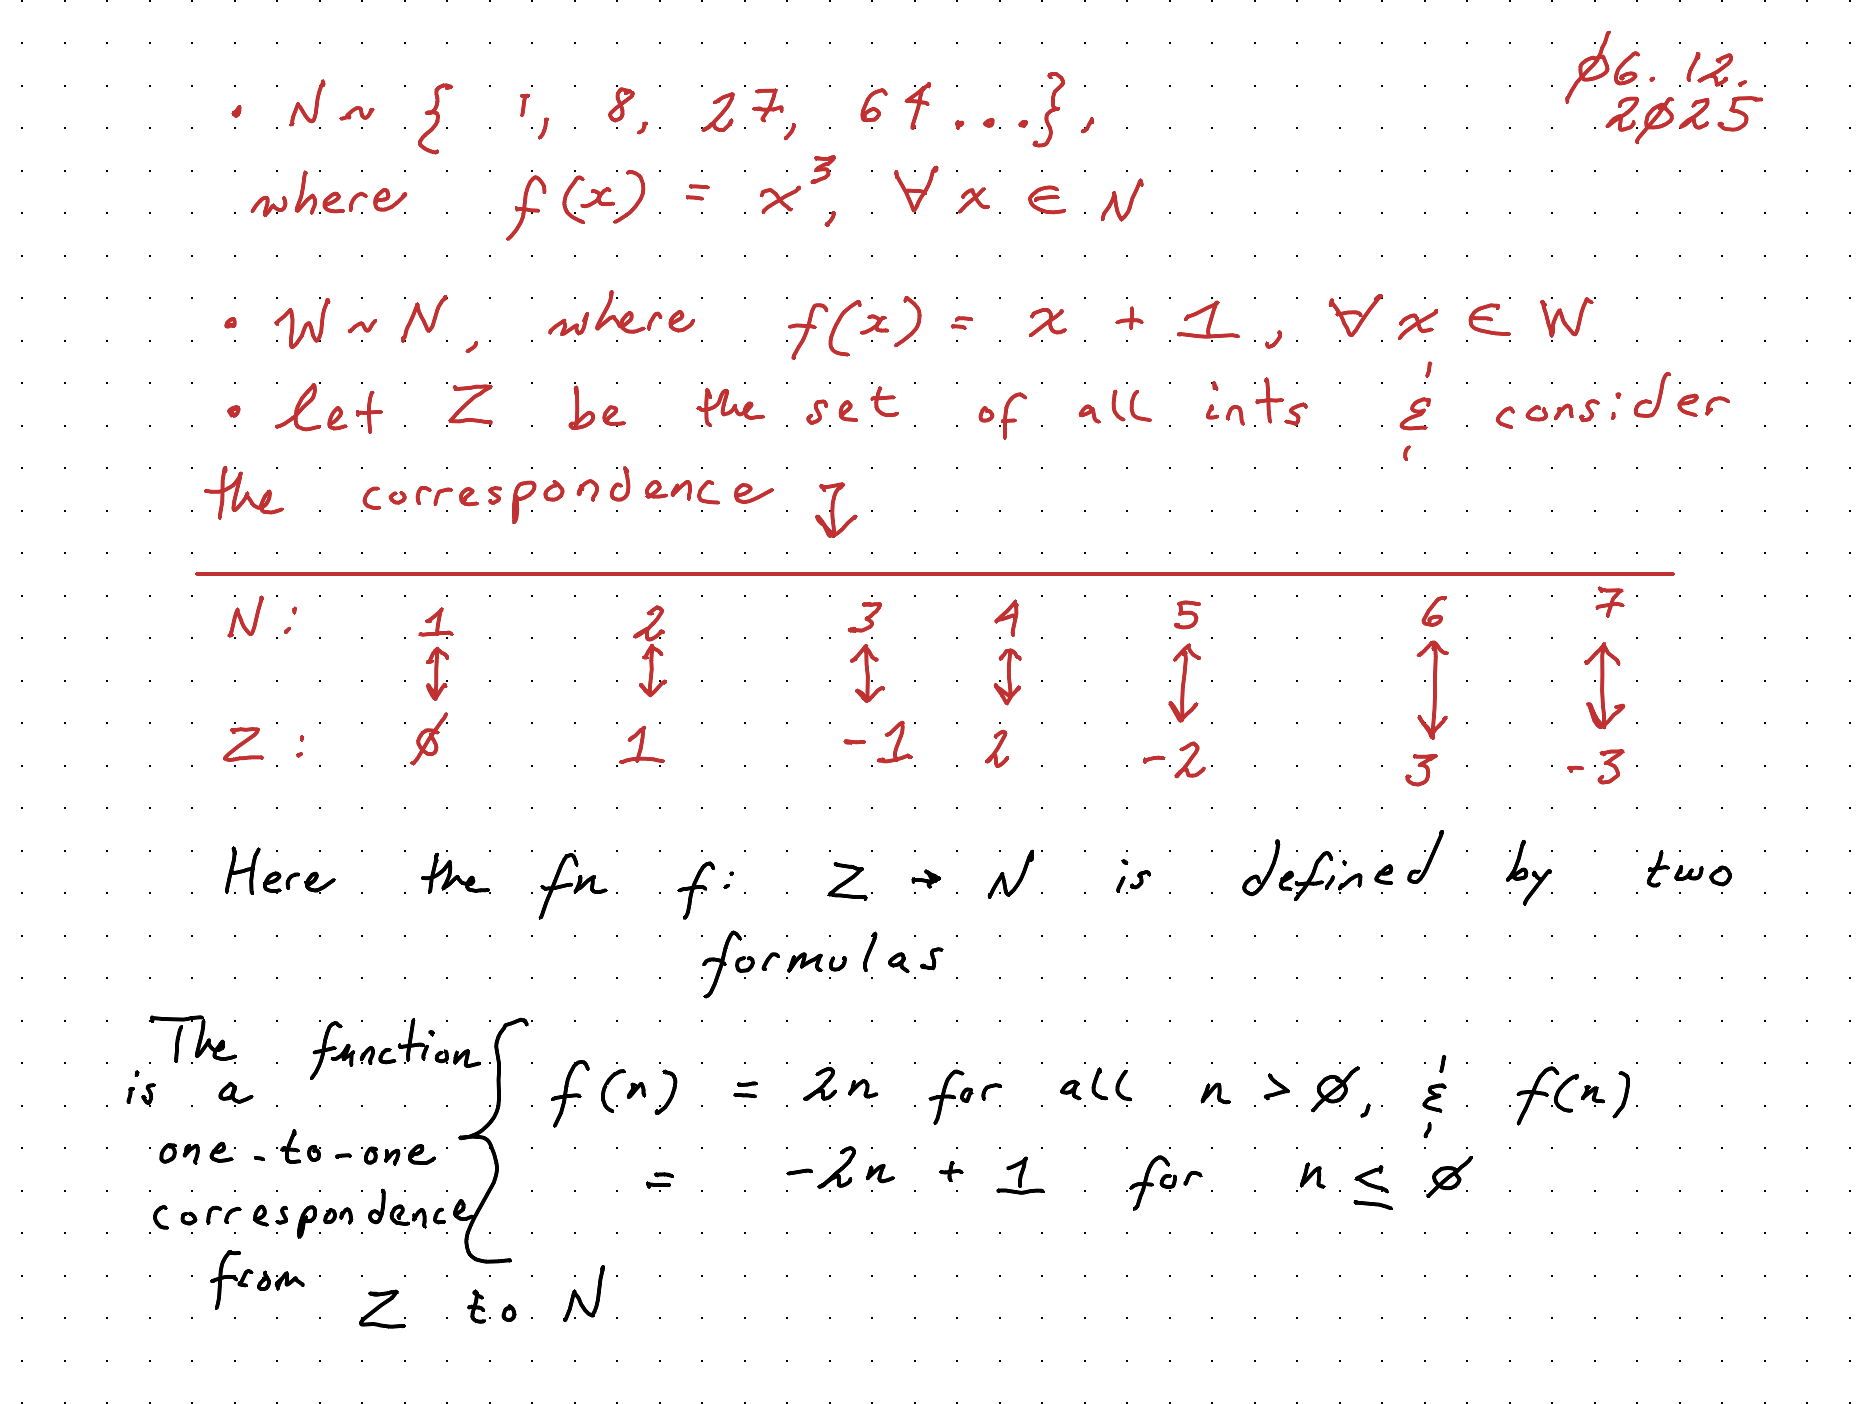 Ø6.12.
2Ø25
• N ~ { 1, 8, 27, 64 ...},
where f(x) = x³, ∀ x ∈ N
• W ~ N, where f(x) = x + 1, ∀ x ∈ W
• Let Z be the set of all ints & consider
the correspondence ↓
N: 1 2 3 4 5 6 7
↕ ↕ ↕ ↕ ↕ ↕ ↕
Z: Ø 1 -1 2 -2 3 -3
Here the fn f: Z → N is defined by two
formulas
The function
is a
one-to-one
correspondence
from
Z to N
{ f(n) = 2n for all n > Ø, & f(n)
= -2n + 1 for n ≤ Ø